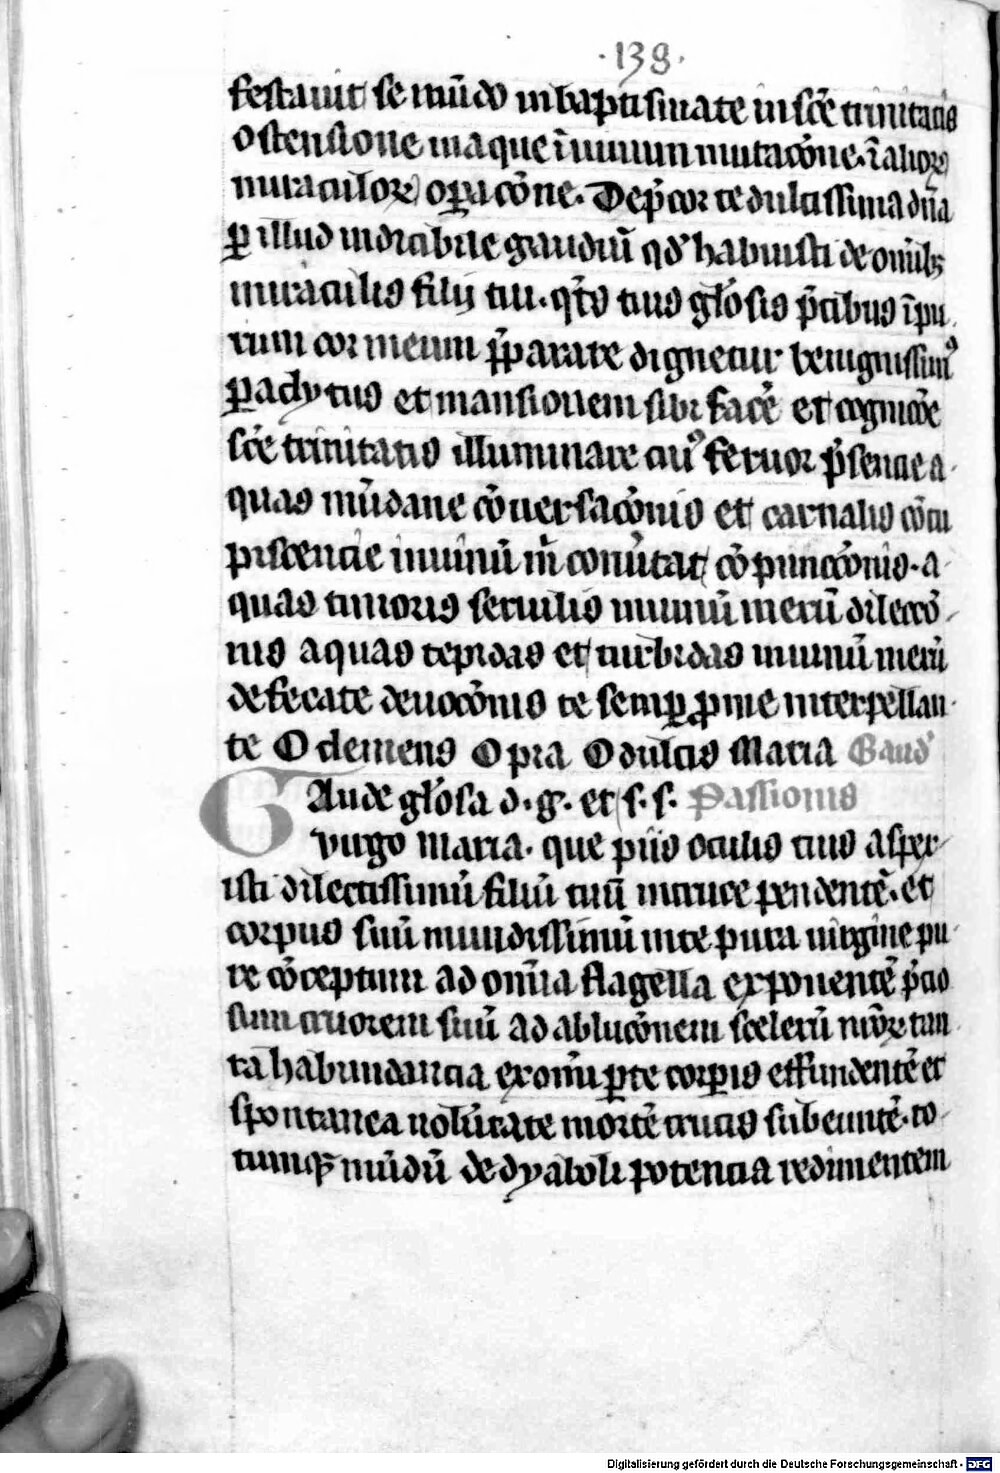 ·138·
festauit se mūdo in baptismate in scē trinitatis
ostensione in aque ī vinum mutacōne· ī alioꝝ
miraculoꝝ oꝑacōne· Dep̄cor te dulcissima dn̄a
ꝑ illud indicibile gaudiū qd̓ habuisti de om̄ibꝫ
miraculis filij tui· qt̓s tuis glōsis p̄cibus īpu
rum cor meum p̄parare dignetur benignissimꝰ
ꝑaclytus et mansionem sibi facē et cognicōe
scē trinitatis illuminare cuiꝰ feruor p̄sencie a
quas mūdane cōuersacōnis et carnalis cōcu
piscencie in vinū m̄ conūtat cōpunccōnis· a
quas timoris seruilis in vinū merū dileccō
nis aquas tepidas et turbidas in vinū merū
defecate deuocōnis te semꝑ ꝓ me interpellan
te O clemens O pia O dulcis Maria Gaud̓
GAude glōsa d· g· et s· s· Passionis
virgo maria· que piis oculis tuis aspex
isti dilectissimū filiū tuū in cruce pendentē· et
corpus suū mundissimū in te pura virgine pu
re cōceptum ad om̄ia flagella exponentē p̄cio
sum cruorem suū ad ablucōnem scelerū nr̄oꝝ tan
ta habundancia ex om̄i ꝑte corꝑis effundentē et
spontanea volūtate mortē crucis subeuntē· to
tumqꝫ mūdū de dyaboli potencia redimentem
Digitalisierung gefördert durch die Deutsche Forschungsgemeinschaft - DFG